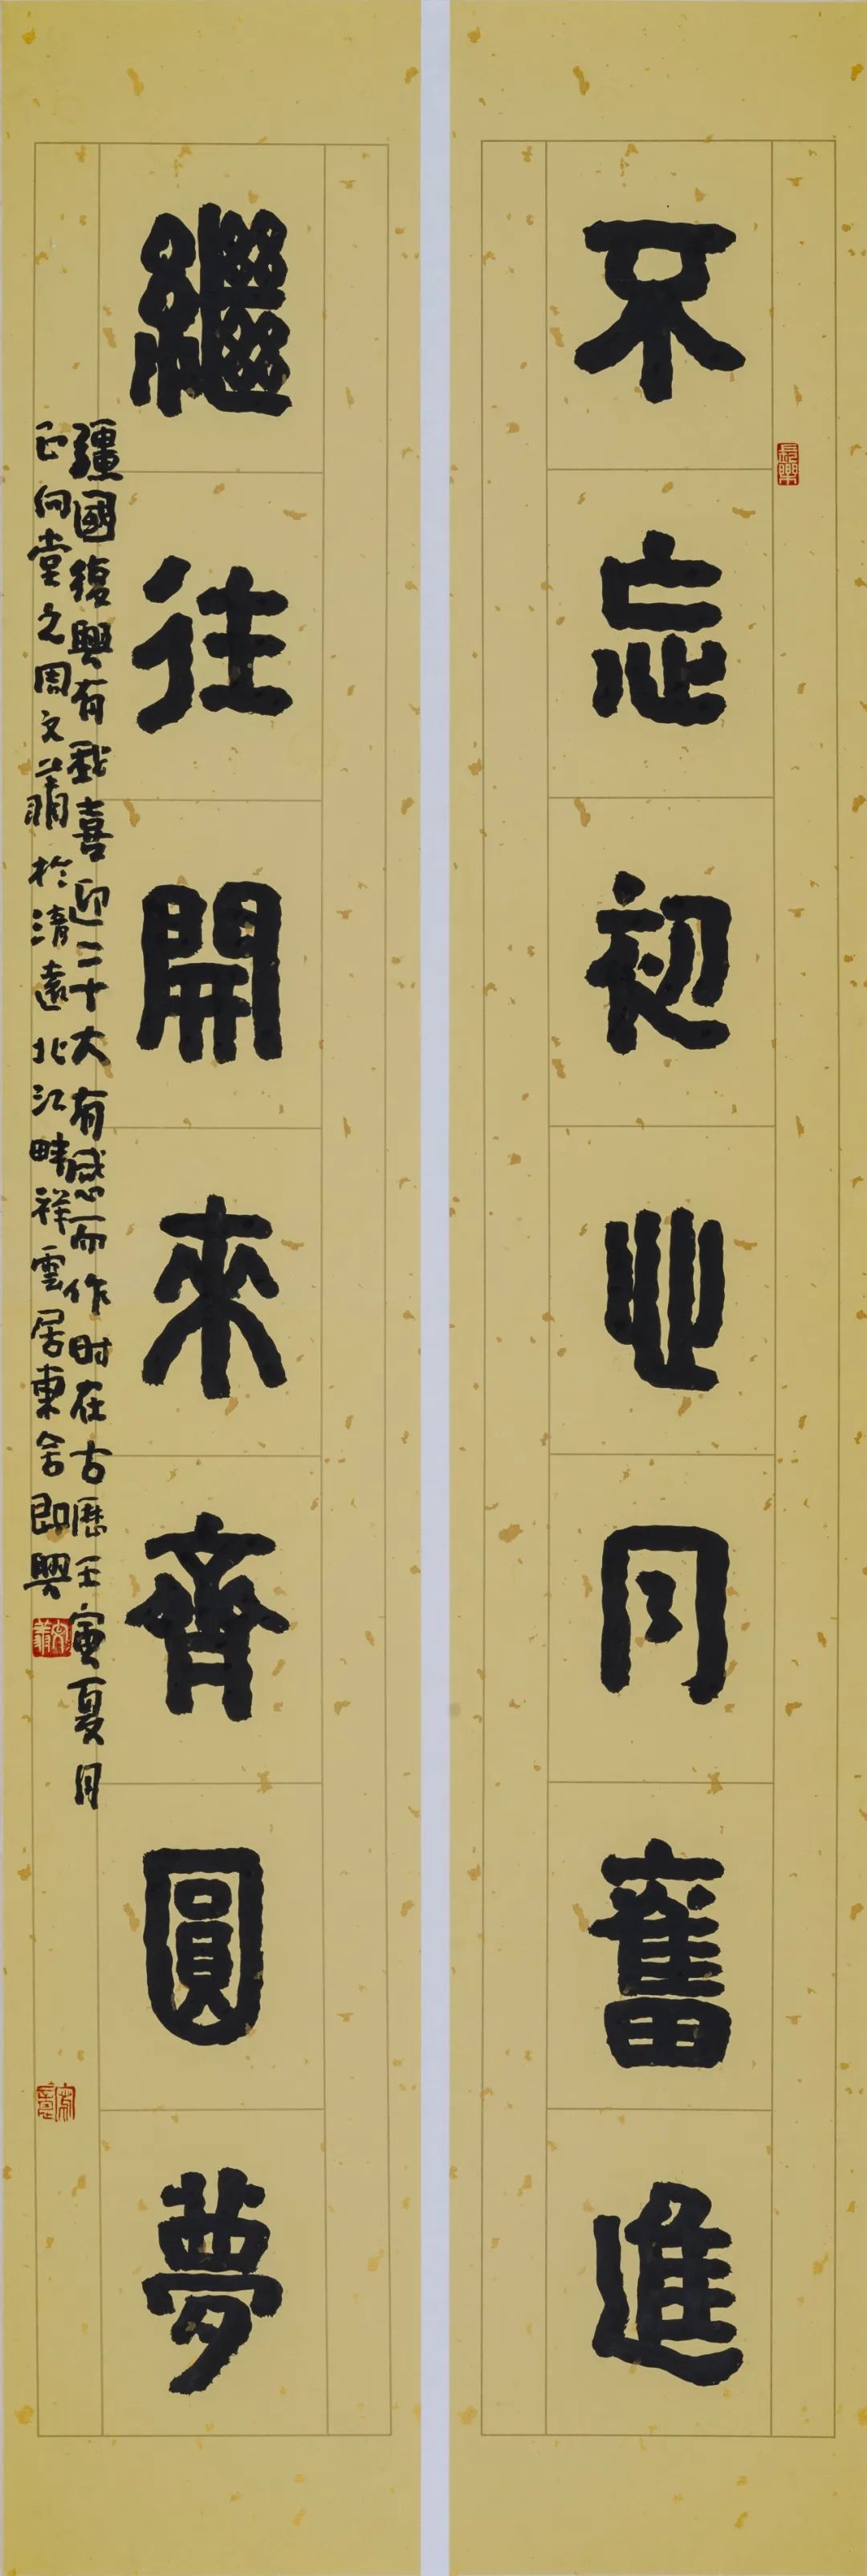 不忘初心同奮進
繼往開來齊圓夢
彊國復興有我喜迎二十大有感而作时在古歷壬寅夏月
正向堂之周文肅於清遠北江畔祥雲居東舍即興
長樂